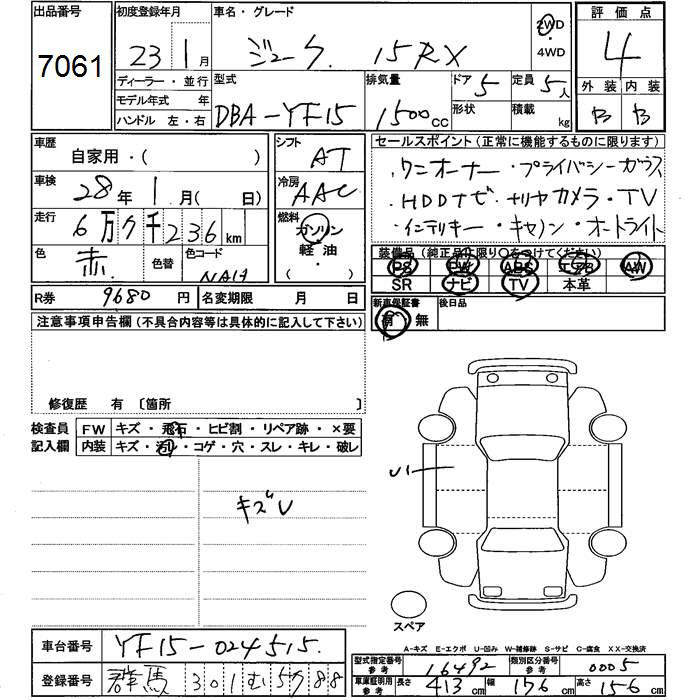 出品番号 初度登録年月 車名・グレード 評価点
7061 23 1月 ジューク 15RX 2WD 4WD 4
ディーラー・並行 型式 排気量 ドア 5 定員 5人 外装 内装
モデル年式 年 DBA-YF15 1500cc 形状 積載 kg B B
ハンドル 左・右
車歴 シフト セールスポイント(正常に機能するものに限ります)
自家用・( ) AT ・ワンオーナー・プライバシーガラス
車検 28年 1月( 日) 冷房 AAC ・HDDナビ・ナリヤカメラ・TV
走行 6万7千236km 燃料 ガソリン ・インテリキー・キセノン・オートライト
軽油
・
( )
色 赤 色替 色コード NAH 装備品(純正品に限り○をつけてください)
PS PW ABS エアB AW
SR ナビ TV 本革
R券 9680円 名変期限 月 日 新車保証書 後日品
有 無
注意事項申告欄(不具合内容等は具体的に記入して下さい)
修復歴 有 〔箇所 〕
検査員 FW キズ・飛石・ヒビ割・リペア跡・×要
記入欄 内装 キズ・汚れ・コゲ・穴・スレ・キレ・破レ
U1
キズU
スペア
A-キズ E-エクボ U-凹み W-補修跡 S-サビ C-腐食 XX-交換済
車台番号 YF15-024515. 型式指定番号 参考 16492 類別区分番号 参考 0005
登録番号 群馬 301 む 5788 車庫証明用 参考 長さ 413cm 幅 176cm 高さ 156cm